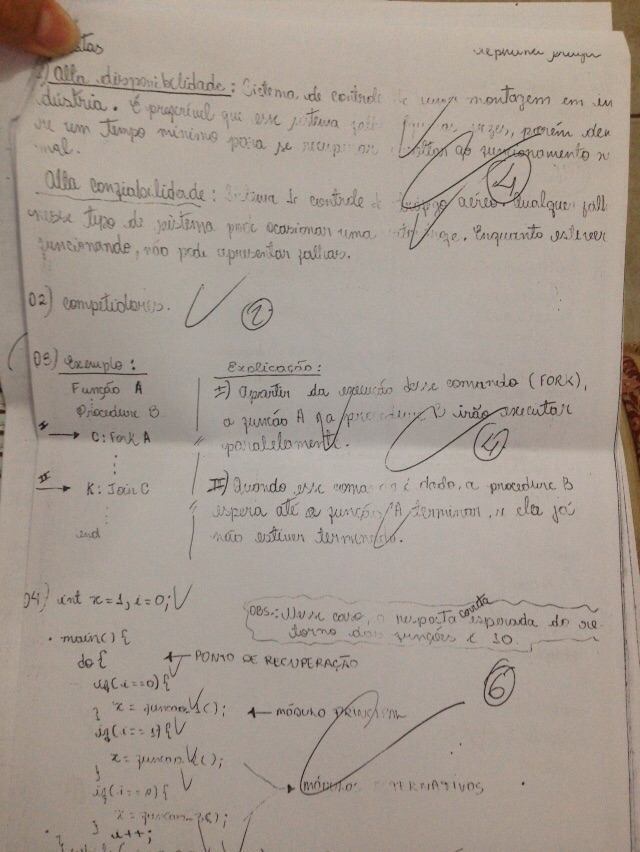 Alta disponibilidade: Sistema de controle de uma montagem em in
dústria. É preferível que esse sistema falhe as vezes, porém deve
um tempo mínimo para se recuperar e voltar ao funcionamento n
mal.
Alta confiabilidade: Sistema de controle de tráfego aéreo. Qualquer falh
nesse tipo de sistema pode ocasionar uma catástrofe. Enquanto estiver
funcionando, não pode apresentar falhas.
4
02) competidores.
2
03) Exemplo:
Função A
Procedure B
I → C: Fork A
II → K: Join C
end
Explicação:
I) Apartir da execução desse comando (FORK),
a função A e a procedure B irão executar
paralelamente.
4
II) Quando esse comando é dado, a procedure B
espera até a função A terminar, se ela já
não estiver terminado.
04) int x=1, i=0;
OBS.: Nesse caso, a resposta correta esperada do re-
torno das funções é 10.
main() {
do {
← PONTO DE RECUPERAÇÃO
if(i==0){
x = funcao_1();
← MÓDULO PRINCIPAL
}
if(i==1){
x = funcao_2();
}
→ MÓDULOS ALTERNATIVOS
6
x = funcao_3();
}
i++;